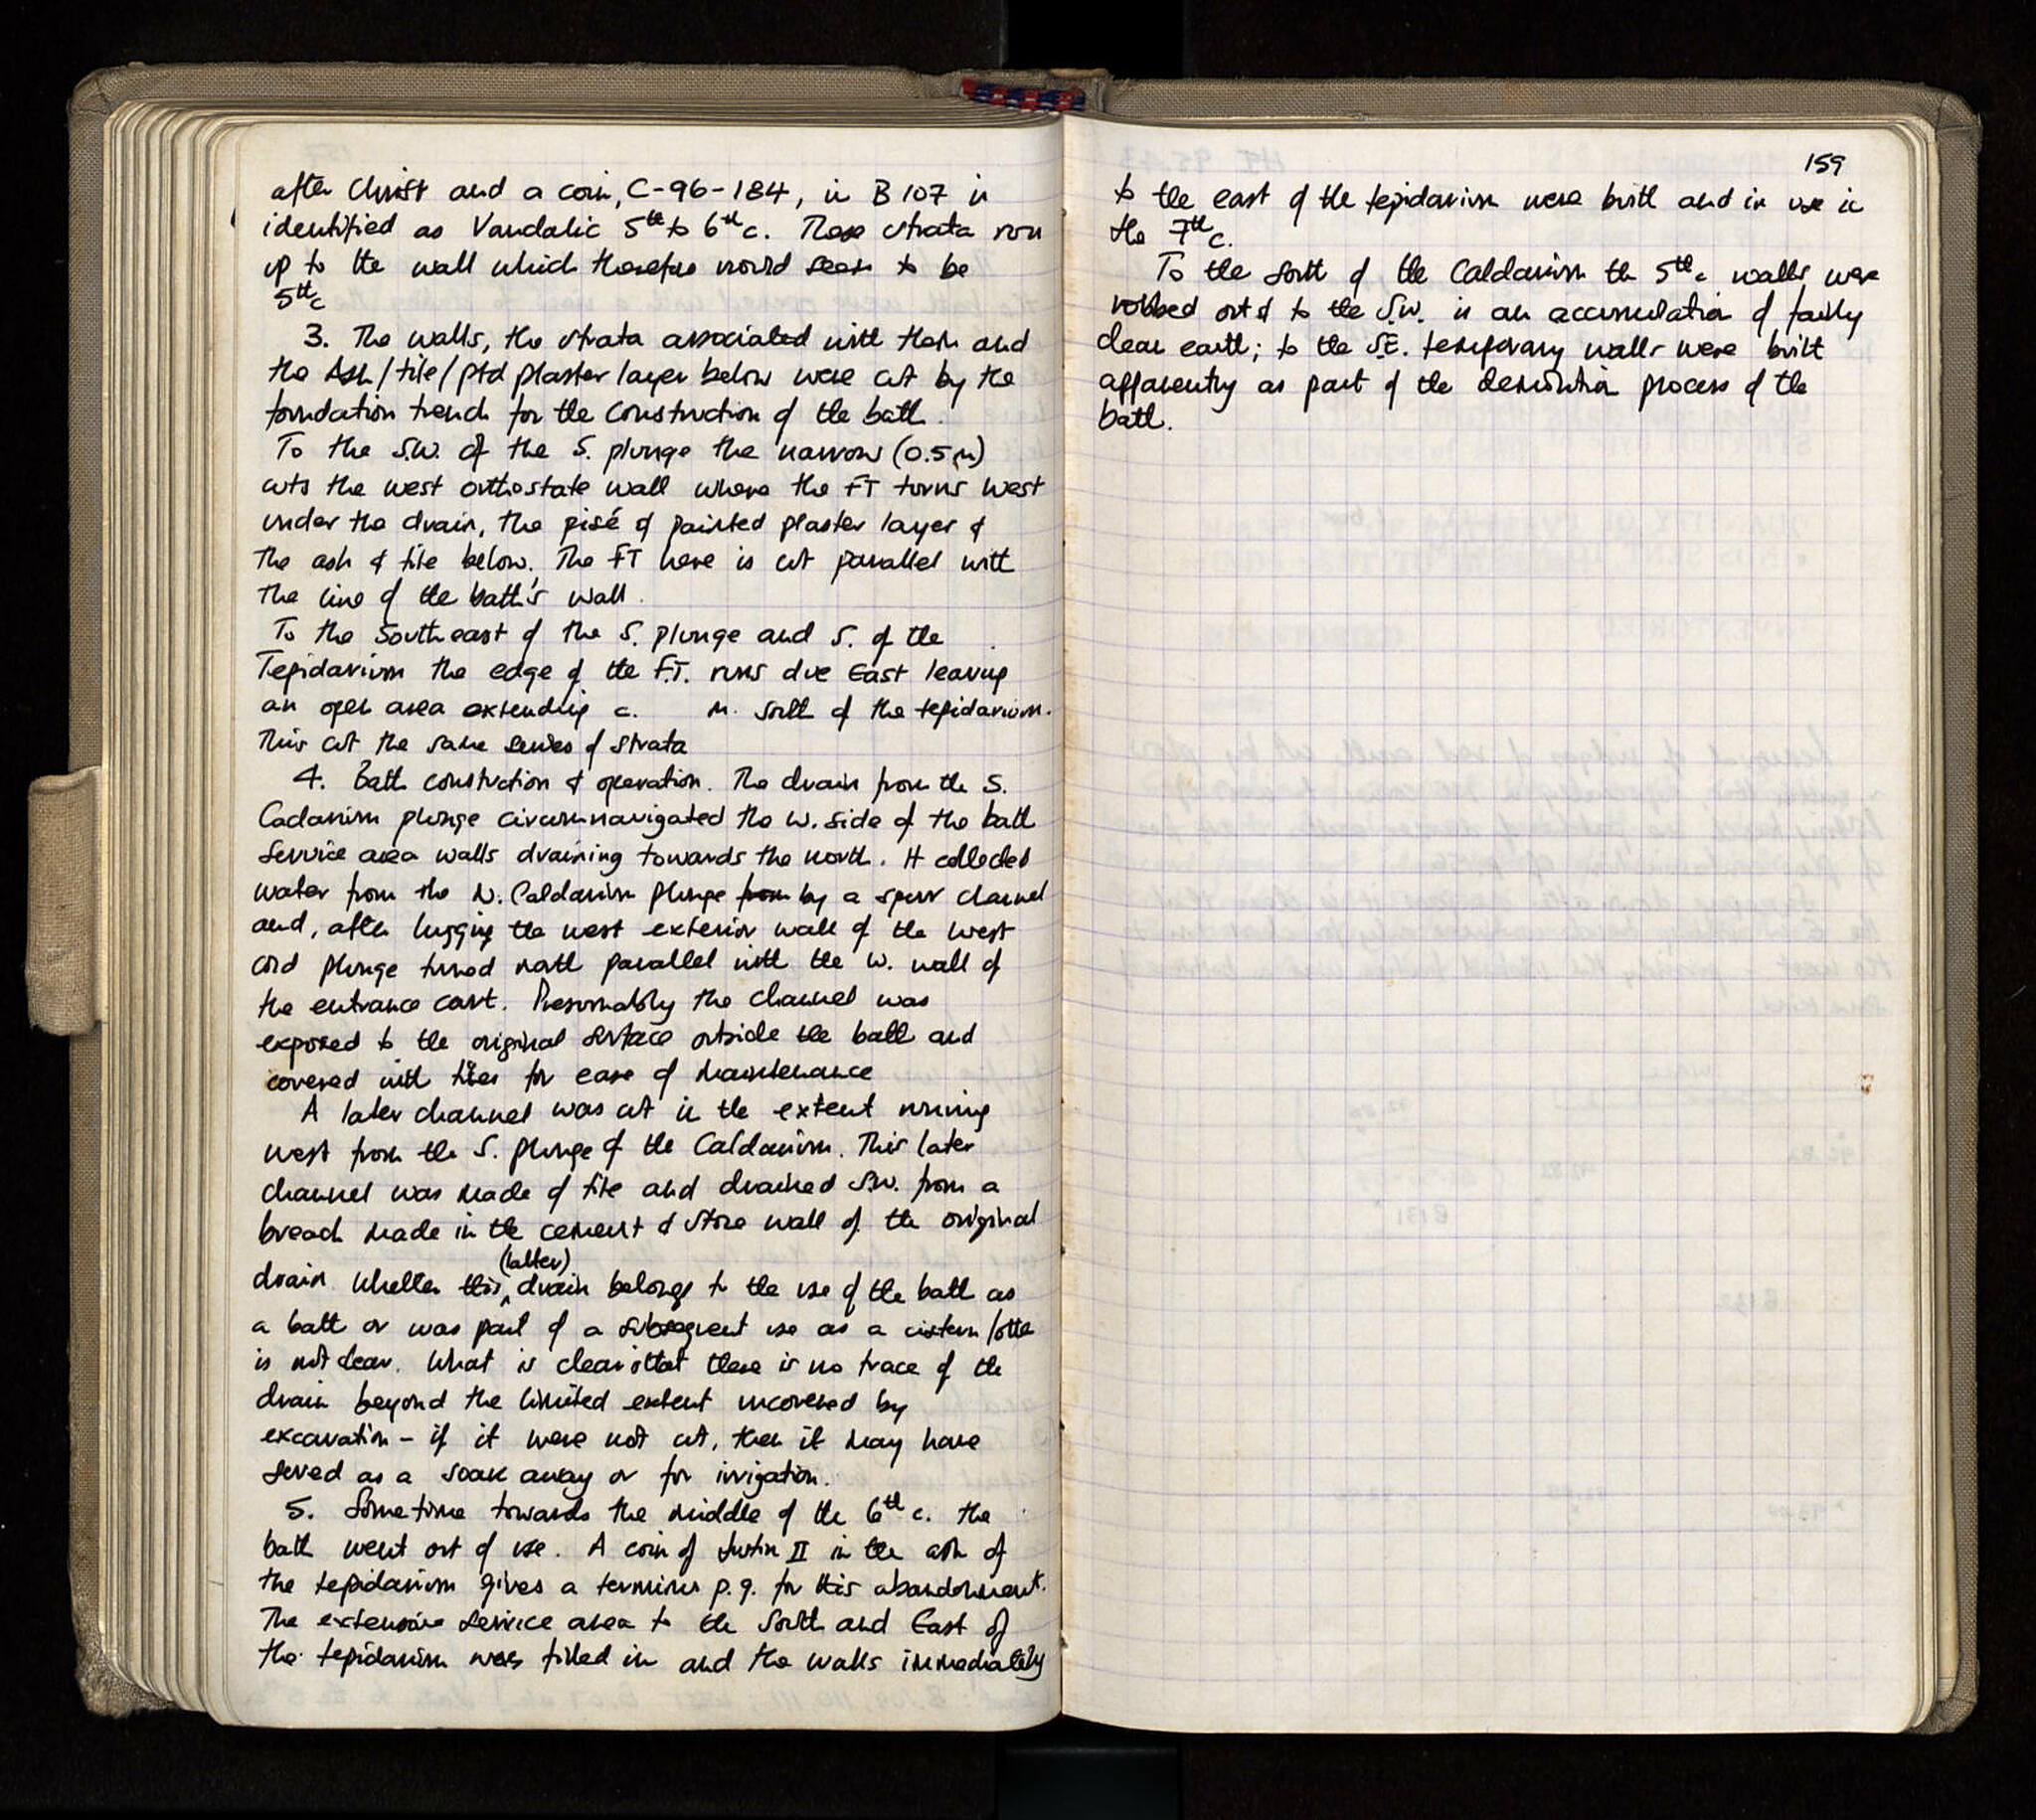 after Christ and a coin, C-96-184, in B 107 is
identified as Vandalic 5th to 6th c. These strata run
up to the wall which therefore would seem to be
5th c
3. The walls, the strata associated with them and
the Ash/tile/ptd plaster layer below were cut by the
foundation trench for the construction of the bath.
To the S.W. of the S. plunge the narrow (0.5m)
cuts the west orthostate wall where the FT turns West
under the drain, the pisé & painted plaster layer &
the ash & tile below. The FT here is cut parallel with
the line of the bath's wall.
To the Southeast of the S. plunge and S. of the
Tepidarium the edge of the F.T. runs due East leaving
an open area extending c. m. south of the tepidarium.
This cut the same series of strata
4. Bath constuction & operation. The drain from the S.
Cadarium plunge circumnavigated the W. side of the bath
service area walls draining towards the north. It collected
water from the N. Caldarium plunge from by a spur channel
and, after hugging the west exterior wall of the west
cold plunge turned north parallel with the W. wall of
the entrance court. Presumably the channel was
exposed to the original surface outside the bath and
covered with tiles for ease of maintenance
A later channel was cut in the extent running
west from the S. plunge of the Caldarium. This later
channel was made of tile and drained S.W. from a
breach made in the cement & stone wall of the original
(latter)
drain Whether this drain belongs to the use of the bath as
a bath or was part of a subsequent use as a cistern
is not clear. What is clear is that there is no trace of the
drain beyond the limited extent uncovered by
excavation - if it were not cut, then it may have
served as a soak away or for irrigation.
5. Sometime towards the middle of the 6th c. the
bath went out of use. A coin of Justin II in the ash of
the tepidarium gives a terminus p.q. for this abandonment.
The extensive service area to the South and East of
the tepidarium was filled in and the walls immediately
159
to the east of the tepidarium were built and in use in
the 7th c.
To the south of the Caldarium the 5th c walls were
robbed out & to the S.W. is an accumulation of fairly
clean earth; to the S.E. temporary walls were built
apparently as part of the demolition process of the
bath.